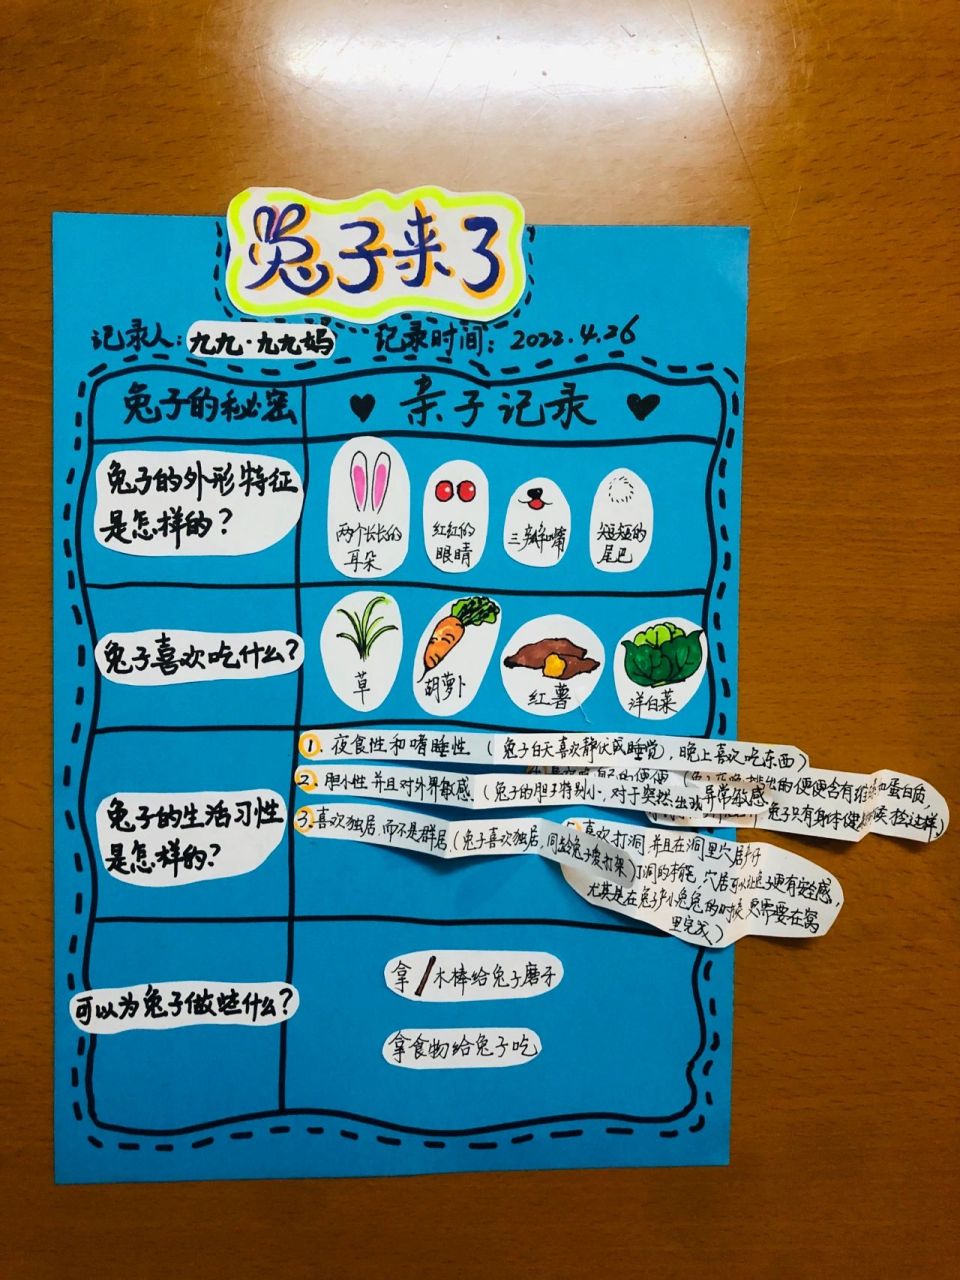 兔子来了
记录人：九九·九九妈 记录时间：2022.4.26
兔子的秘密
亲子记录
兔子的外形特征
是怎样的？
两个长长的
耳朵
红红的
眼睛
三瓣嘴
短短的
尾巴
兔子喜欢吃什么？
草
胡萝卜
红薯
洋白菜
兔子的生活习性
是怎样的？
1、夜食性和嗜睡性（兔子白天喜欢静伏或睡觉，晚上喜欢吃东西）
2、胆小性并且对外界敏感（兔子的胆子特别小，对于突然出现 异常敏感
的便便含有维 蛋白质，
兔子只有身体健 候 这样）
3、喜欢独居，而不是群居（兔子喜欢独居，同龄兔子爱打架）
喜欢打洞并且在洞里穴居
打洞的 ，穴居可以让兔子更有安全感，
尤其是在兔子产小兔兔的时候 需要在窝
里完成）
可以为兔子做些什么？
拿 木棒给兔子磨牙
拿食物给兔子吃